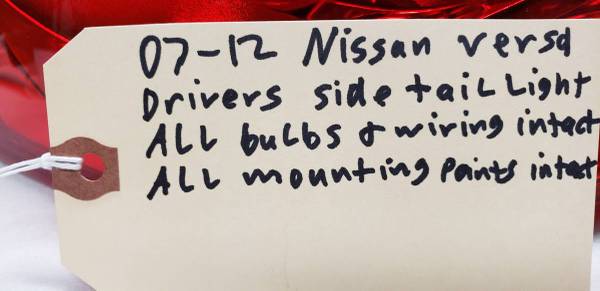 07-12 Nissan versa
Drivers side tail Light
ALL bulbs & wiring intact
ALL mounting points intact